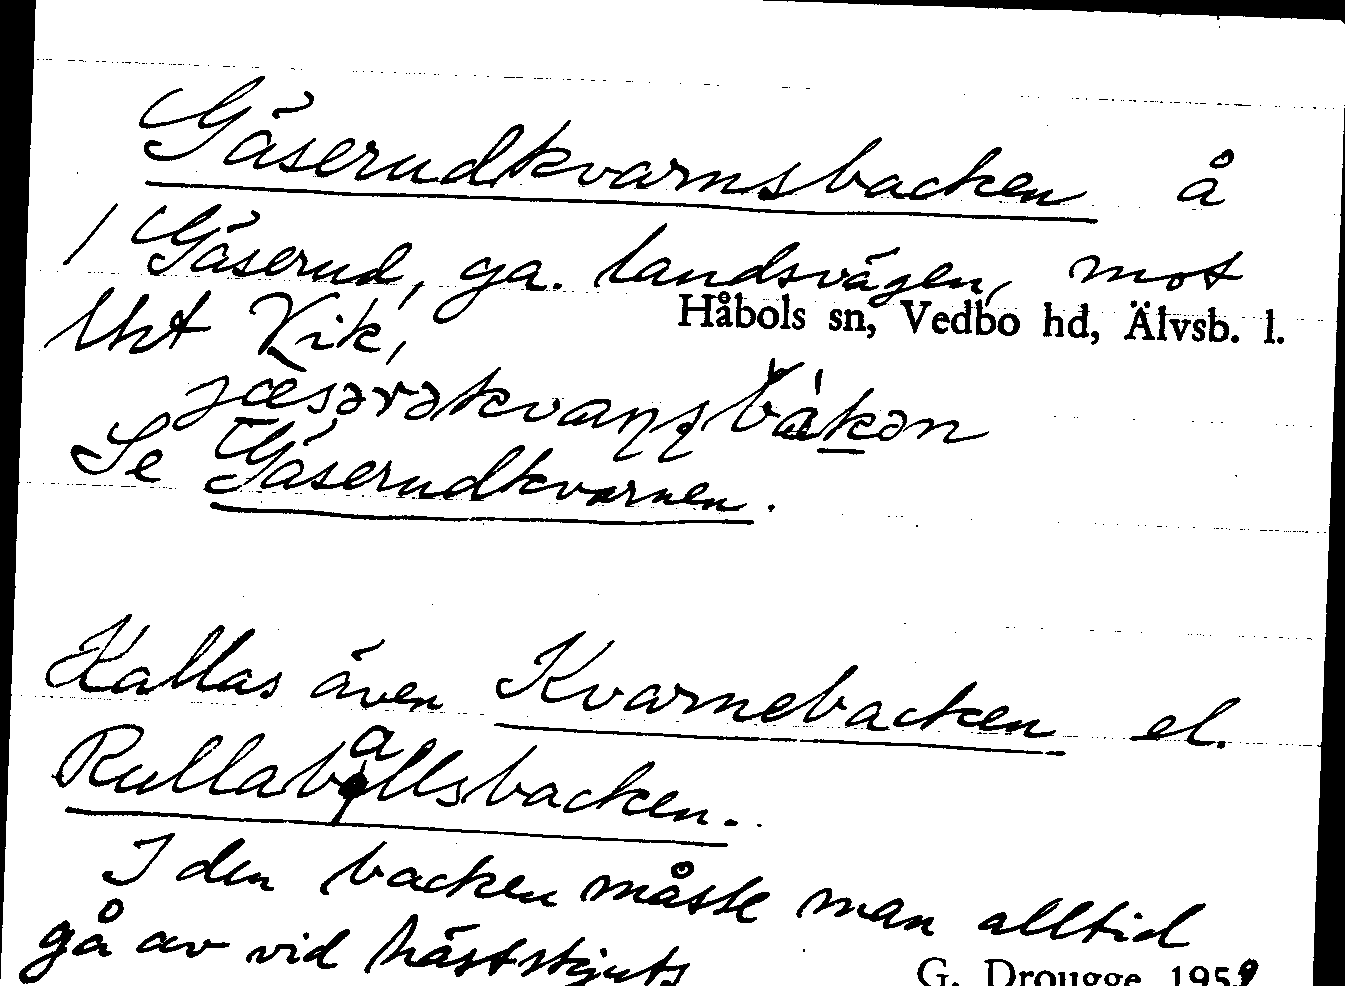 Gäserudkvarnsbacken å
/ Gäserud, ga. landsvägen, mot
Håbols sn, Vedbo hd, Älvsb. l.
lht Kik,
Se Gäserudkvarnen.
Kallas även Kvarnebacken el.
Rullaballsbacken.
I den backen måste man alltid
gå av vid hästskjuts
G. Drougge 1959